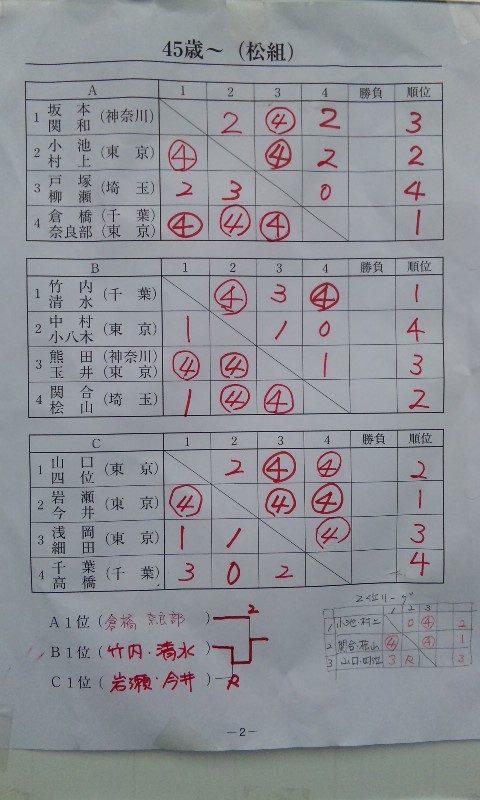 45歳〜（松組）
A 1 2 3 4 勝負 順位
1 坂本 関和 (神奈川) 2 ④ 2 3
2 小池 村上 (東京) ④ ④ 2 2
3 戸塚 柳瀬 (埼玉) 2 3 0 4
4 倉橋 (千葉) 奈良部 (東京) ④ ④ ④ 1
B 1 2 3 4 勝負 順位
1 竹内 清水 (千葉) ④ 3 ④ 1
2 中村 小八木 (東京) 1 1 0 4
3 熊田 (神奈川) 玉井 (東京) ④ ④ 1 3
4 関合 桧山 (埼玉) 1 ④ ④ 2
C 1 2 3 4 勝負 順位
1 山口 四位 (東京) 2 ④ ④ 2
2 岩瀬 今井 (東京) ④ ④ ④ 1
3 浅岡 細田 (東京) 1 1 ④ 3
4 千葉 高橋 (千葉) 3 0 2 4
A1位(倉橋 奈良部) 2
B1位(竹内・清水)
C1位(岩瀬・今井) R
2位リーグ
1 2 3
1 小池・村上 0 ④ 2
2 関合・桧山 ④ ④ 1
3 山口・四位 3 R 3
−2−